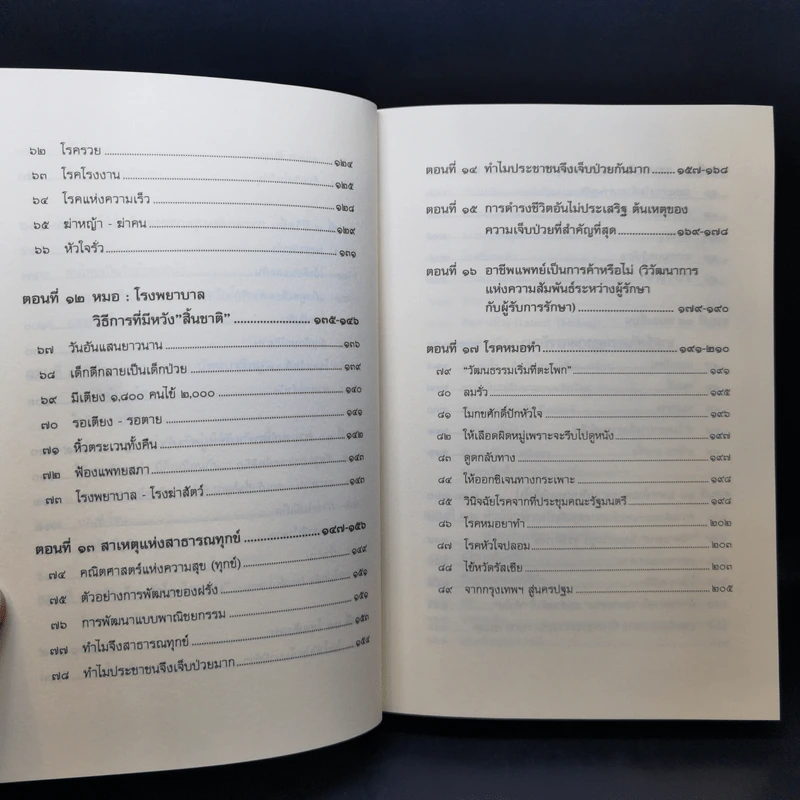 ๖๒ โรครวย ๑๒๔
๖๓ โรคโรงงาน ๑๒๕
๖๔ โรคแห่งความเร็ว ๑๒๘
๖๕ ฆ่าหญ้า - ฆ่าคน ๑๒๙
๖๖ หัวใจรั่ว ๑๓๑
ตอนที่ ๑๒ หมอ : โรงพยาบาล
วิธีการที่มีหวัง"สิ้นชาติ" ๑๓๕-๑๔๖
๖๗ วันอันแสนยาวนาน ๑๓๖
๖๘ เด็กตึกลายเป็นเด็กป่วย ๑๓๘
๖๙ มีเตียง ๑,๘๐๐ คนไข้ ๒,๐๐๐ ๑๔๐
๗๐ รอเตียง - รอตาย ๑๔๑
๗๑ หิ้วตระเวนทั้งคืน ๑๔๒
๗๒ ฟ้องแพทยสภา ๑๔๓
๗๓ โรงพยาบาล - โรงฆ่าสัตว์ ๑๔๓
ตอนที่ ๑๓ สาเหตุแห่งสาธารณทุกข์ ๑๔๗-๑๕๖
๗๔ คณิตศาสตร์แห่งความสุข (ทุกข์) ๑๔๙
๗๕ ตัวอย่างการพัฒนาของฝรั่ง ๑๕๑
๗๖ การพัฒนาแบบพาณิชยกรรม ๑๕๑
๗๗ ทำไมจึงสาธารณทุกข์ ๑๕๓
๗๘ ทำไมประชาชนจึงเจ็บป่วยมาก ๑๕๔
ตอนที่ ๑๔ ทำไมประชาชนจึงเจ็บป่วยกันมาก ๑๕๗-๑๖๘
ตอนที่ ๑๕ การดำรงชีวิตอันไม่ประเสริฐ ต้นเหตุของ
ความเจ็บป่วยที่สำคัญที่สุด ๑๖๙-๑๗๘
ตอนที่ ๑๖ อาชีพแพทย์เป็นการค้าหรือไม่ (วิวัฒนาการ
แห่งความสัมพันธ์ระหว่างผู้รักษา
กับผู้รับการรักษา) ๑๗๙-๑๙๐
ตอนที่ ๑๗ โรคหมอทำ ๑๙๑-๒๑๐
๗๙ "วัฒนธรรมเริ่มที่ตะโพก" ๑๙๑
๘๐ ลมรั่ว ๑๙๕
๘๑ โมกขศักดิ์ปักหัวใจ ๑๙๖
๘๒ ให้เลือดผิดหมู่เพราะจะรีบไปดูหนัง ๑๙๗
๘๓ ดูดกลับทาง ๑๙๗
๘๔ ให้ออกซิเจนทางกระเพาะ ๑๙๘
๘๕ วินิจฉัยโรคจากที่ประชุมคณะรัฐมนตรี ๑๙๘
๘๖ โรคหมอยาทำ ๒๐๒
๘๗ โรคหัวใจปลอม ๒๐๓
๘๘ ไข้หวัดรัสเซีย ๒๐๓
๘๙ จากกรุงเทพฯ สู่นครปฐม ๒๐๕